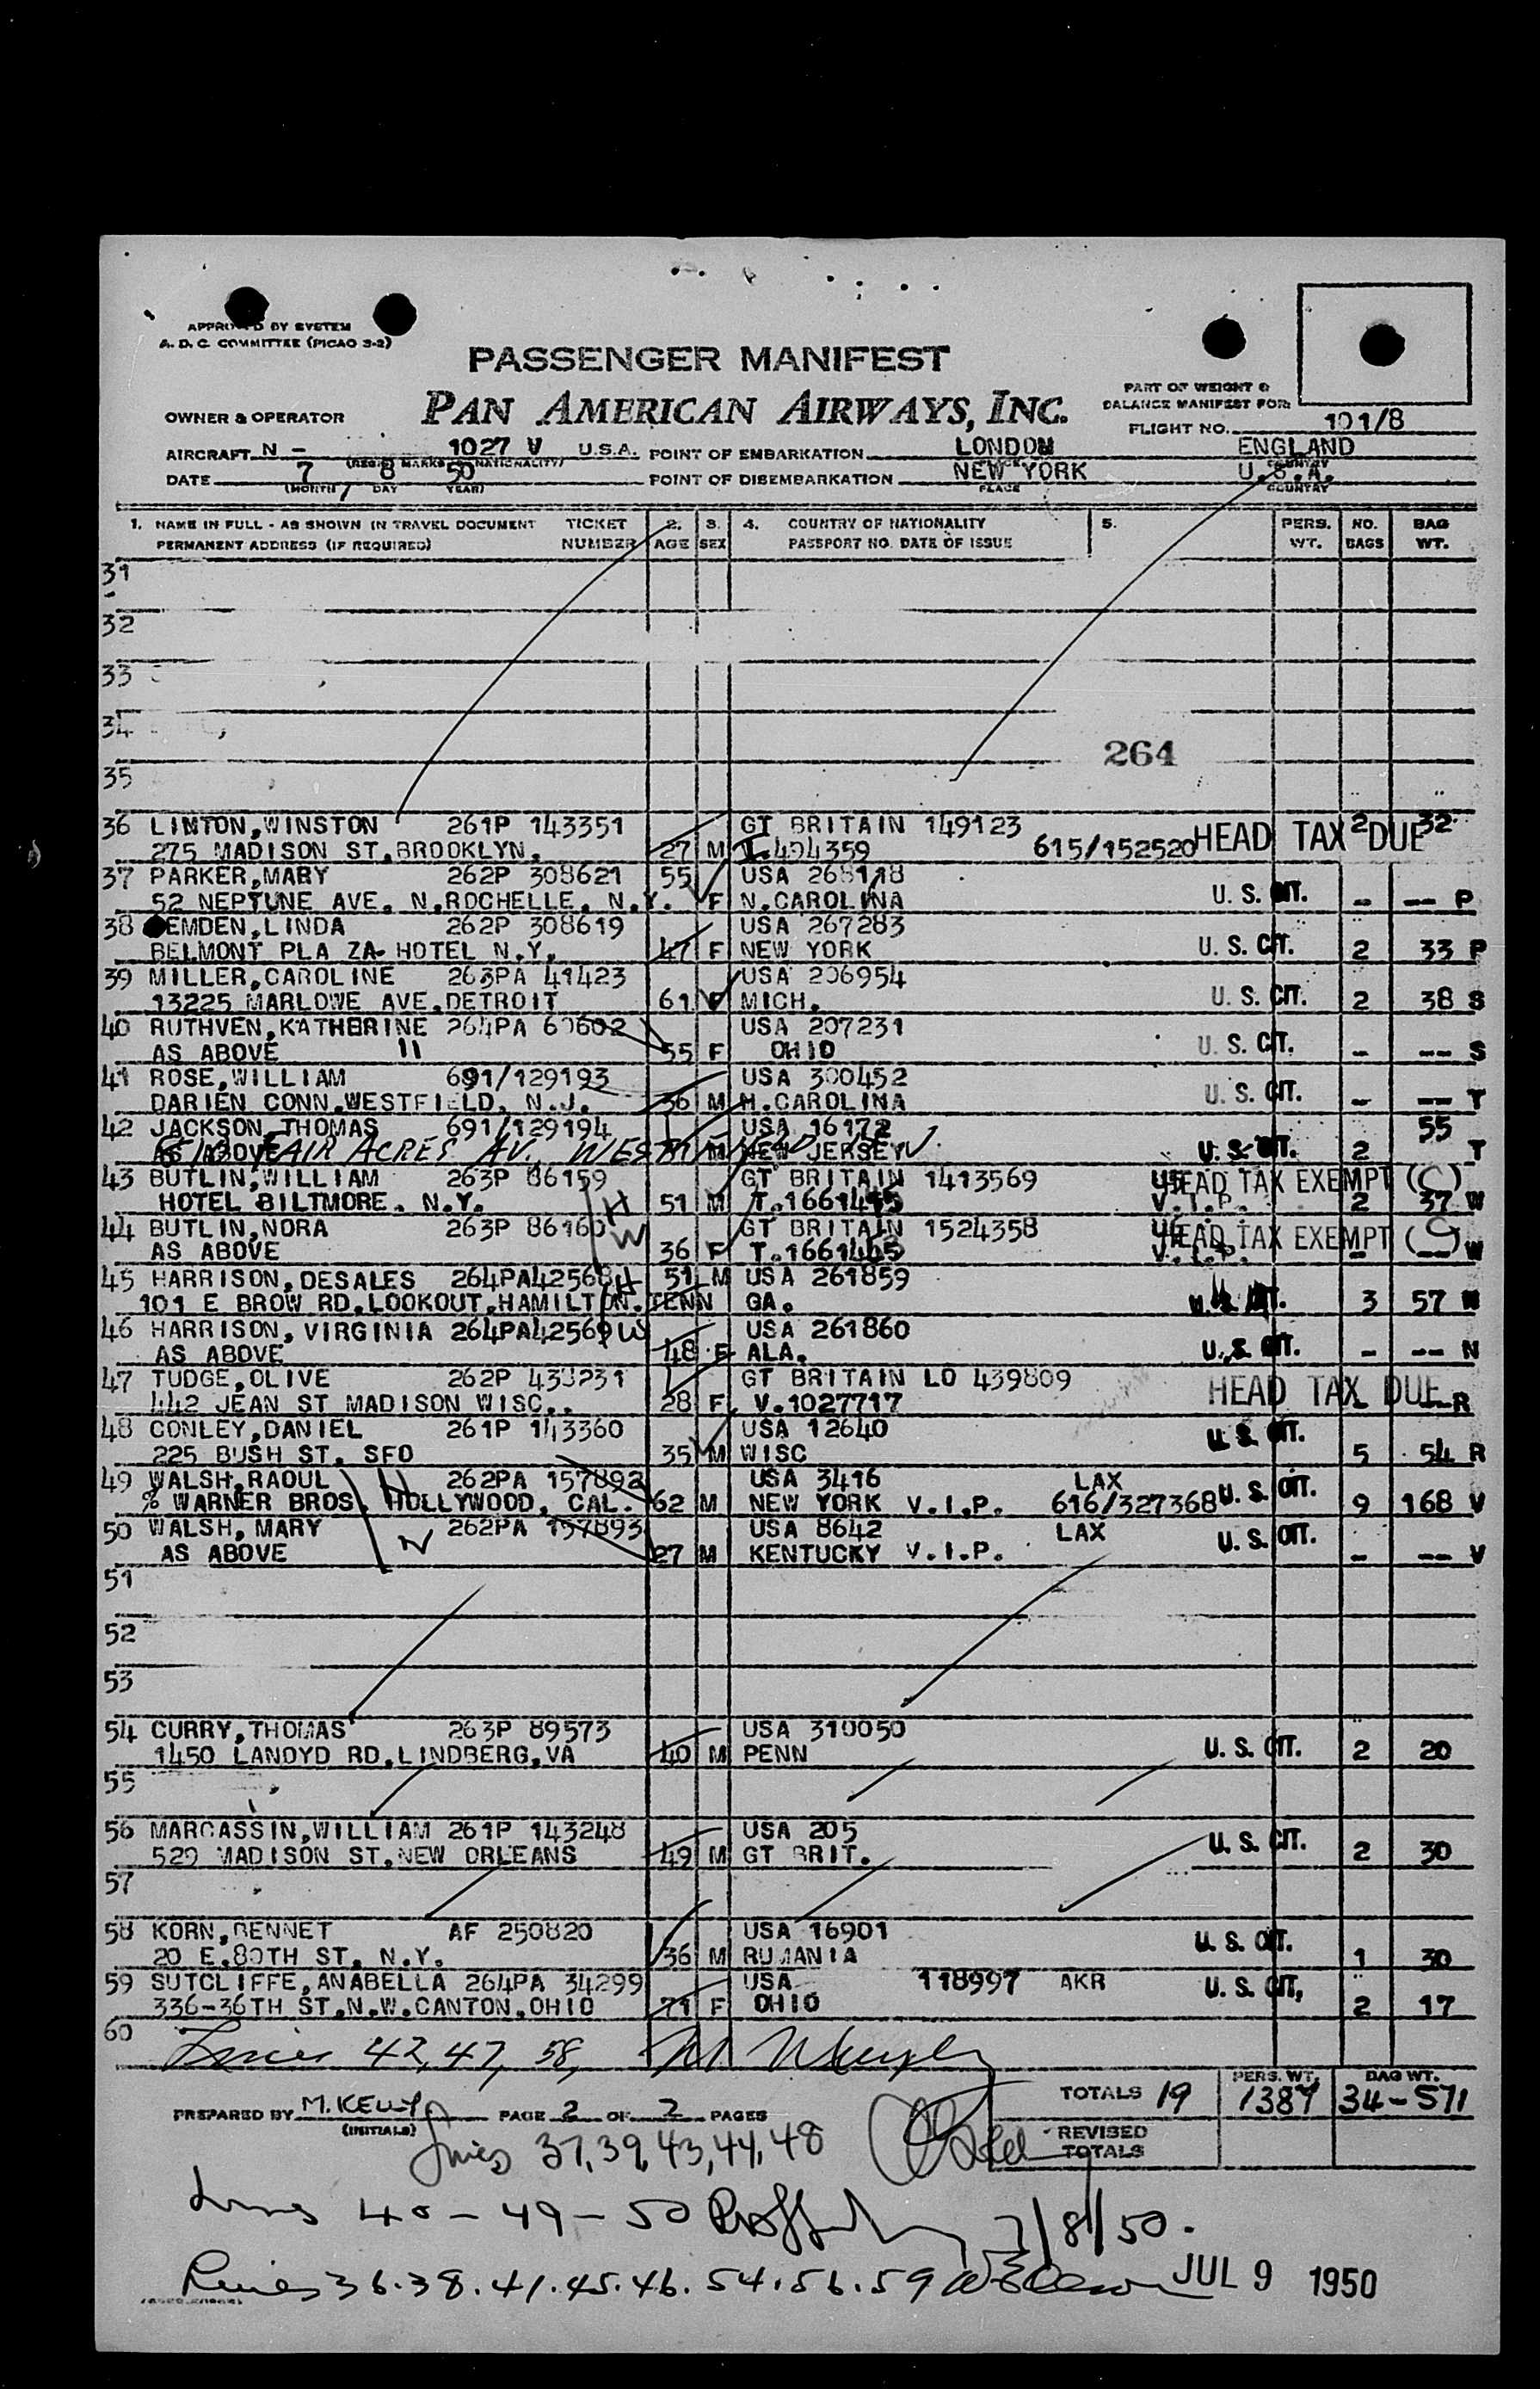 APPROVED BY SYSTEM
A. D. C. COMMITTEE (PICAO 3-2)
PASSENGER MANIFEST
PAN AMERICAN AIRWAYS, INC.
PART OF WEIGHT &
BALANCE MANIFEST FOR:
FLIGHT NO. 101/8
OWNER & OPERATOR
AIRCRAFT N - 1027 V U.S.A. POINT OF EMBARKATION LONDON ENGLAND
(REGIS MARKS NATIONALITY) PLACE COUNTRY
DATE 7 8 50 POINT OF DISEMBARKATION NEW YORK U.S.A.
(MONTH) DAY YEAR) PLACE COUNTRY
1. NAME IN FULL - AS SHOWN IN TRAVEL DOCUMENT TICKET 2. 3. 4. COUNTRY OF NATIONALITY 5. PERS. NO. BAG
PERMANENT ADDRESS (IF REQUIRED) NUMBER AGE SEX PASSPORT NO. DATE OF ISSUE WT. BAGS WT.
31
32
33
34
264
35
36 LINTON, WINSTON 261P 143351 GT BRITAIN 149123 2 32
275 MADISON ST.BROOKLYN. 27 M 615/152520 HEAD TAX DUE
37 PARKER,MARY 262P 308621 55 USA 268118
52 NEPTUNE AVE. N.ROCHELLE. N.Y. F N.CAROLINA U. S. CIT. - -- P
38 EMDEN,LINDA 262P 308619 USA 267283
BELMONT PLA ZA HOTEL N.Y. 47 F NEW YORK U. S. CIT. 2 33 P
39 MILLER,CAROLINE 263PA 41423 USA 206954
13225 MARLOWE AVE.DETROIT 61 F MICH. U. S. CIT. 2 38 S
40 RUTHVEN,KATHERINE 264PA 60602 USA 207231
AS ABOVE " 55 F OHIO U. S. CIT. - -- S
41 ROSE,WILLIAM 691/129193 USA 300452
DARIEN CONN.WESTFIELD. N.J. 36 M N.CAROLINA U. S. CIT. - -- T
42 JACKSON,THOMAS 691/129194 USA 16172 55
AS ABOVE FAIR ACRES AV. M NEW JERSEY U. S. CIT. 2 T
43 BUTLIN,WILLIAM 263P 86159 H GT BRITAIN 1413569 HEAD TAX EXEMPT (C)
HOTEL BILTMORE. N.Y. 51 M V.I.P. 2 37 W
44 BUTLIN,NORA 263P 86160 W GT BRITAIN 1524358 HEAD TAX EXEMPT (C)
AS ABOVE 36 F V.I.P. - -- W
45 HARRISON,DESALES 264PA42568 H 51 M USA 261859
101 E BROW RD.LOOKOUT.HAMILTON.TENN GA. 3 57 N
46 HARRISON, VIRGINIA 264PA42569 W USA 261860
AS ABOVE 48 F ALA. U. S. CIT. - -- N
47 TUDGE,OLIVE 262P 438231 GT BRITAIN LO 439809
442 JEAN ST MADISON WISC.. 28 F V.1027717 HEAD TAX DUE - -- R
48 CONLEY,DANIEL 261P 143360 USA 12640
225 BUSH ST. SFO 35 M WISC U. S. CIT. 5 54 R
49 WALSH,RAOUL H 262PA 157892 USA 3416 LAX
% WARNER BROS. HOLLYWOOD, CAL. 62 M NEW YORK V.I.P. 616/327368 U. S. CIT. 9 168 V
50 WALSH, MARY W 262PA 157893 USA 8642 LAX
AS ABOVE 27 M KENTUCKY V.I.P. U. S. CIT. - -- V
51
52
53
54 CURRY,THOMAS 263P 89573 USA 310050
1450 LANDYD RD.LINDBERG,VA 40 M PENN U. S. CIT. 2 20
55
56 MARCASSIN,WILLIAM 261P 143248 USA 205
529 MADISON ST.NEW ORLEANS 49 M GT BRIT. U. S. CIT. 2 30
57
58 KORN,BENNET AF 250820 USA 16901
20 E.80TH ST. N.Y. 36 M RUMANIA U. S. CIT. 1 30
59 SUTCLIFFE,ANABELLA 264PA 34299 USA 118997 AKR
336-36TH ST.N.W.CANTON,OHIO 71 F OHIO U. S. CIT, 2 17
60 Lines 42, 47, 58,
TOTALS 19 PERS. WT. 1387 BAG WT. 34-571
PREPARED BY M. KELLY PAGE 2 OF 2 PAGES
(INITIALS) REVISED TOTALS
Lines 37, 39, 43, 44, 48
Lines 40 - 49 - 50 7/8/50.
Lines 36.38.41.45.46.54.56.59 JUL 9 1950